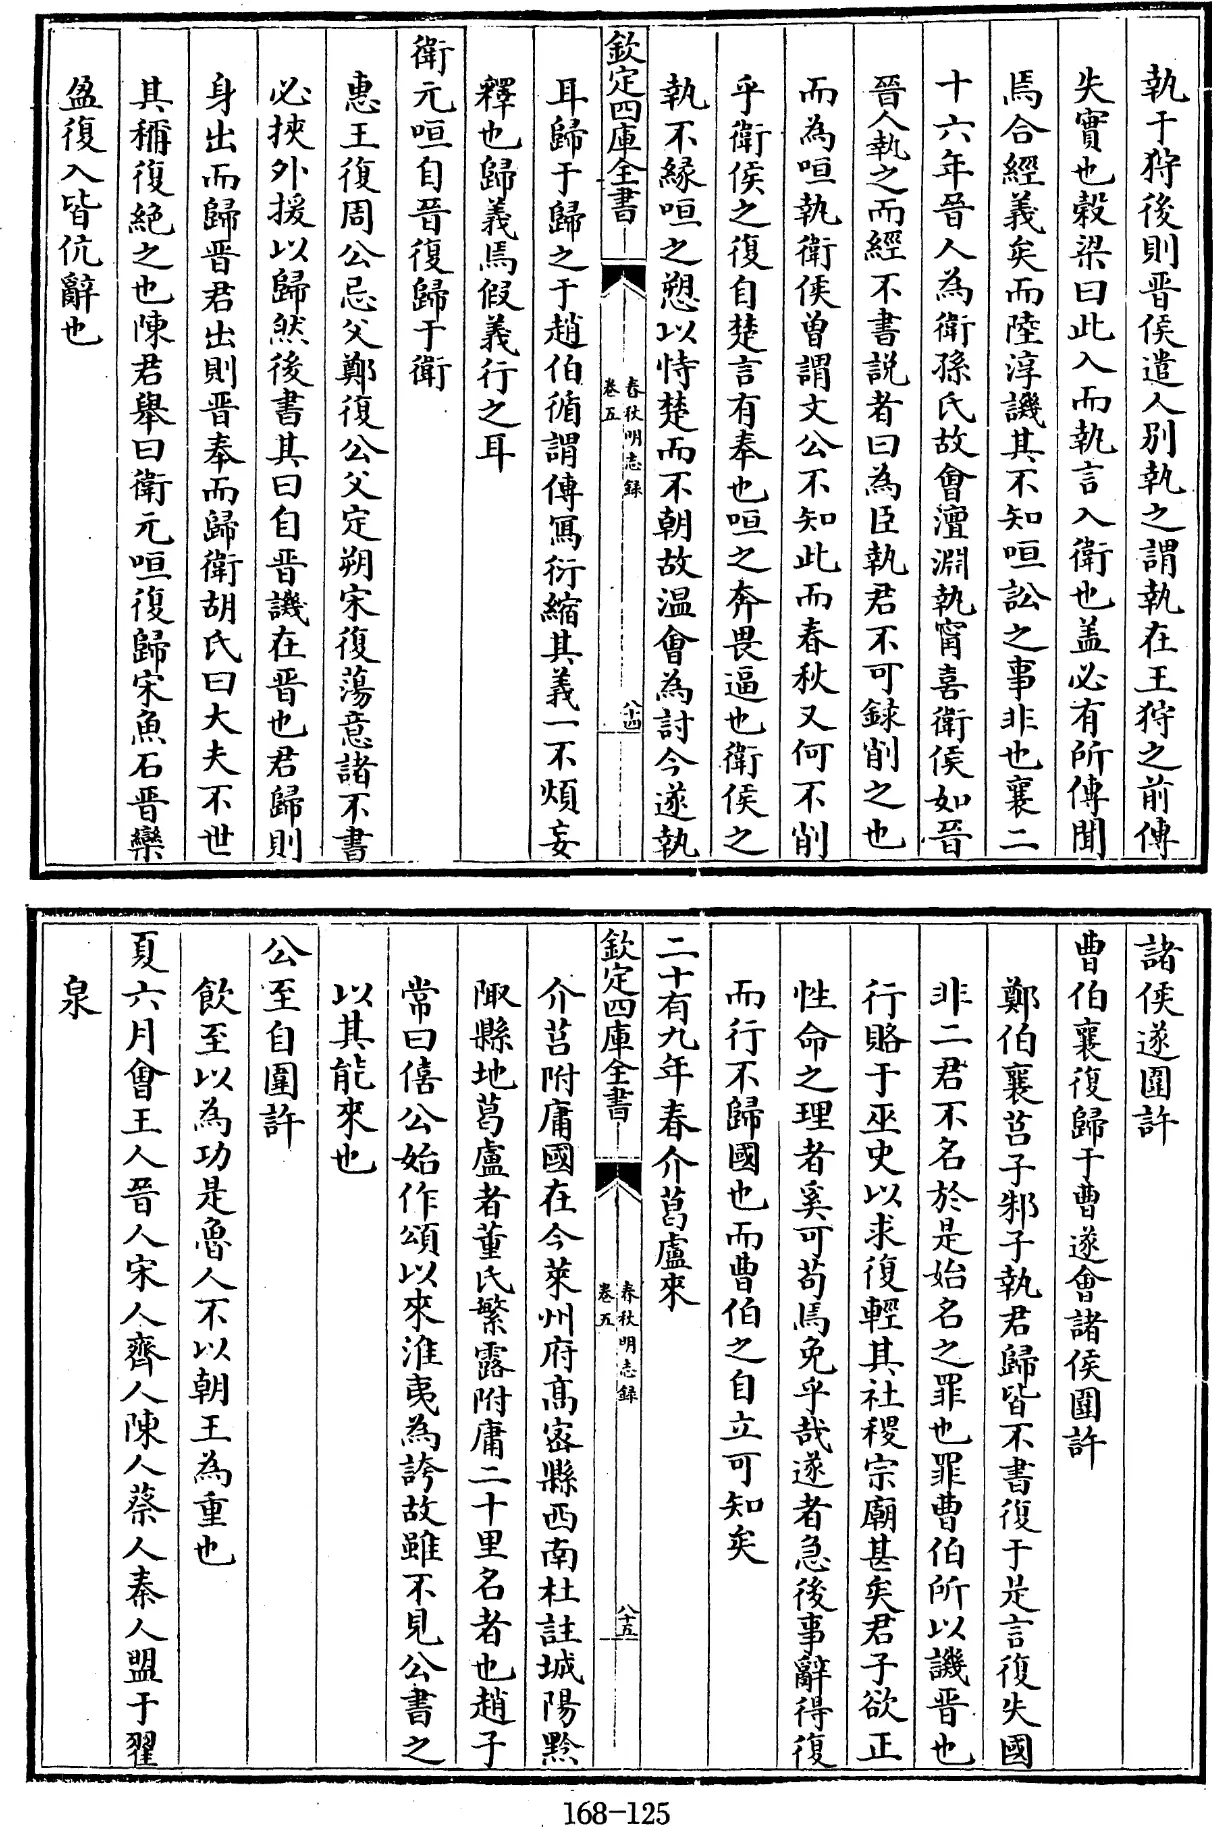 執于狩後則晉侯遣人别執之謂執在王狩之前傳
失實也糓梁曰此入而執言入衛也盖必有所傳聞
焉合經義矣而陸淳譏其不知咺訟之事非也襄二
十六年晉人為衛孫氏故會澶淵執甯喜衛侯如晉
晉人執之而經不書説者曰為臣執君不可録削之也
而為咺執衛侯曽謂文公不知此而春秋又何不削
乎衛侯之復自楚言有奉也咺之奔畏逼也衛侯之
執不縁咺之愬以恃楚而不朝故温會為討今遂執
欽定四庫全書
春秋明志録
卷五
八十四
耳歸于歸之于趙伯循謂傳寫衍縮其義一不煩妄
釋也歸義焉假義行之耳
衛元咺自晉復歸于衛
惠王復周公忌父鄭復公父定朔宋復蕩意諸不書
必挾外援以歸然後書其曰自晉譏在晉也君歸則
身出而歸晉君出則晉奉而歸衛胡氏曰大夫不世
其稱復絶之也陳君舉曰衛元咺復歸宋魚石晉欒
盈復入皆伉辭也
諸侯遂圍許
曹伯襄復歸于曹遂會諸侯圍許
鄭伯襄莒子邾子執君歸皆不書復于是言復失國
非二君不名於是始名之罪也罪曹伯所以譏晉也
行賂于巫史以求復輕其社稷宗廟甚矣君子欲正
性命之理者奚可苟焉免乎哉遂者急後事辭得復
而行不歸國也而曹伯之自立可知矣
二十有九年春介葛盧來
欽定四庫全書
春秋明志録
卷五
八十五
介莒附庸國在今萊州府髙宻縣西南杜註城陽黔
陬縣地葛盧者董氏繁露附庸二十里名者也趙子
常曰僖公始作頌以來淮夷為誇故雖不見公書之
以其能來也
公至自圍許
飲至以為功是魯人不以朝王為重也
夏六月會王人晉人宋人齊人陳人蔡人秦人盟于翟
泉
168-125